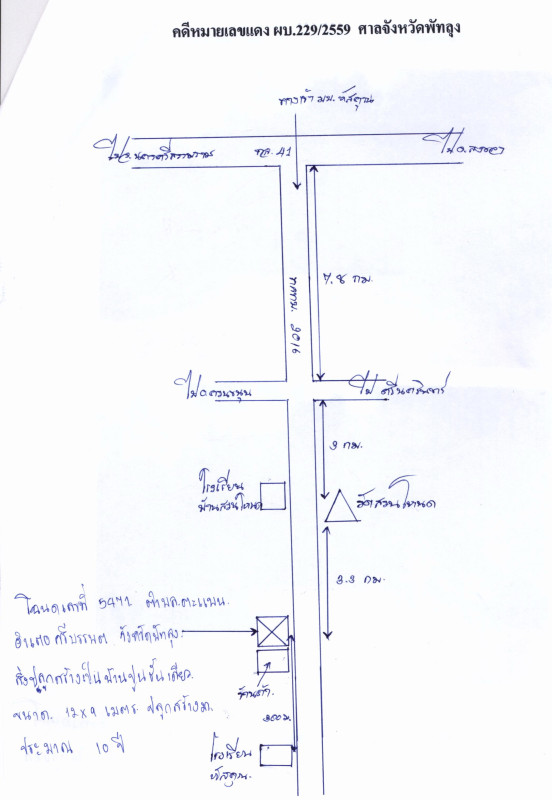 คดีหมายเลขแดง ผบ.229/2559 ศาลจังหวัดพัทลุง
ทางเข้า มบ. หัสคุณ
ไป จ.นครศรีธรรมราช
ทล. 41
ไป จ.สงขลา
7.8 กม.
ถนน
ไป อ.ควนขนุน
ไป ศรีนครินทร์
3 กม.
โรงเรียน
บ้านสวนโหนด
วัดสวนโหนด
3.3 กม.
โฉนดเลขที่ 5471 ตำบลตะแพน
อำเภอ ศรีบรรพต จังหวัดพัทลุง
สิ่งปลูกสร้างเป็นบ้านปูนชั้นเดียว
ขนาด 12x9 เมตร ปลูกสร้างมา
ประมาณ 10 ปี
ร้านค้า
300 ม.
โรงเรียน
หัสคุณ